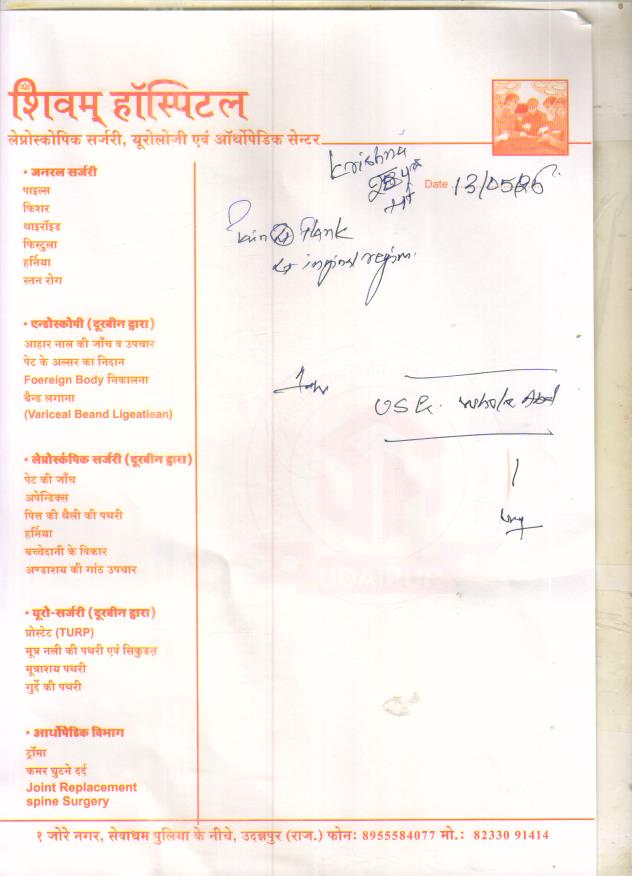 शिवम् हॉस्पिटल
लेप्रोस्कोपिक सर्जरी, यूरोलोजी एवं ऑर्थोपेडिक सेन्टर
Krishna
28 yr
Date 13/05/26
Pain Flank
inginal region.
USG. Whole Abd
• जनरल सर्जरी
पाइल्स
फिशर
थाइरॉइड
फिस्टुला
हर्निया
स्तन रोग
• एन्डोस्कोपी (दूरबीन द्वारा)
आहार नाल की जाँच व उपचार
पेट के अल्सर का निदान
Foereign Body निकालना
बैन्ड लगाना
(Variceal Beand Ligeatiean)
• लेप्रोस्कंपिक सर्जरी (दूरबीन द्वारा)
पेट की जाँच
अपेन्डिक्स
पित्त की थैली की पथरी
हर्निया
बच्चेदानी के विकार
अण्डाशय की गांठ उपचार
UDAIPUR
• यूरो-सर्जरी (दूरबीन द्वारा)
प्रोस्टेट (TURP)
मूत्र नली की पथरी एवं सिकुडन
मूत्राशय पथरी
गुर्दे की पथरी
• आर्थोपेडिक विभाग
ट्रॉमा
कमर घुटने दर्द
Joint Replacement
spine Surgery
१ जोरे नगर, सेवाधम पुलिया के नीचे, उदन्नपुर (राज.) फोनः 8955584077 मो.: 82330 91414